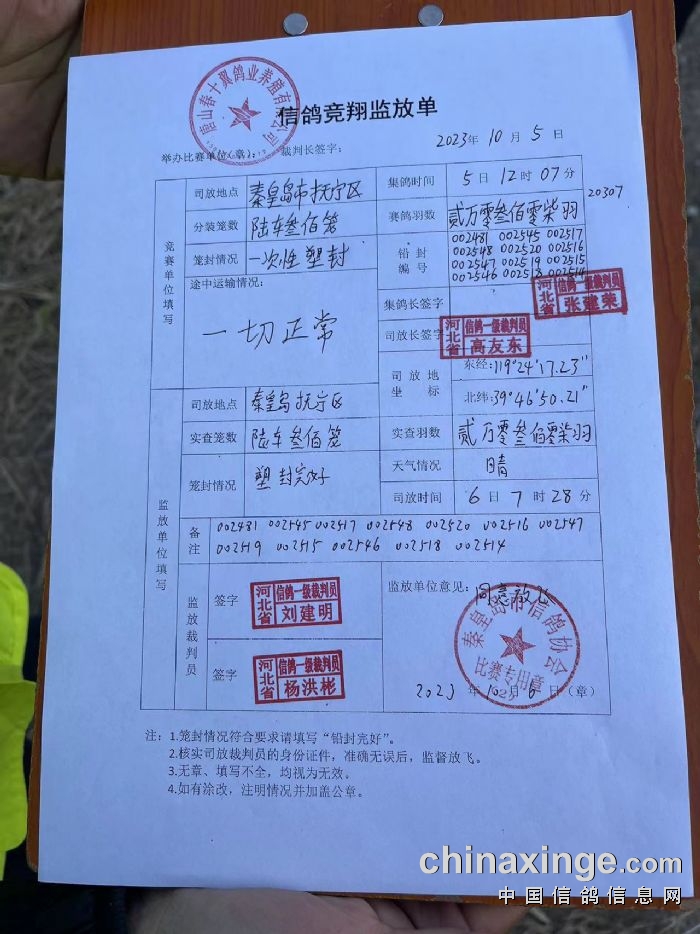 唐山春十翼鸽业养殖有限公司
信鸽竞翔监放单
2023年10月5日
举办比赛单位(章): 裁判长签字:
竞赛单位填写
司放地点 秦皇岛市抚宁区 集鸽时间 5日12时07分
分装笼数 陆车叁佰笼 赛鸽羽数 贰万零叁佰零柒羽 20307
笼封情况 一次性塑封 铅封编号
002481 002545 002517
002548 002520 002516
002547 002519 002515
002546 002518 002514
途中运输情况: 一切正常
集鸽长签字 河北省 信鸽一级裁判员 张建荣
司放长签字 河北省 信鸽一级裁判员 高友东
司放地坐标 东经:119°24'17.23"
北纬:39°46'50.21"
监放单位填写
司放地点 秦皇岛抚宁区
实查笼数 陆车叁佰笼 实查羽数 贰万零叁佰零柒羽
笼封情况 塑封完好 天气情况 晴
司放时间 6日7时28分
备注 002481 002545 002517 002548 002520 002516 002547
002519 002515 002546 002518 002514
监放裁判员
签字 河北省 信鸽一级裁判员 刘建明
签字 河北省 信鸽一级裁判员 杨洪彬
监放单位意见: 同意放飞
秦皇岛市信鸽协会
比赛专用章
2023年10月6日(章)
注: 1.笼封情况符合要求请填写“铅封完好”。
2.核实司放裁判员的身份证件，准确无误后，监督放飞。
3.无章、填写不全，均视为无效。
4.如有涂改，注明情况并加盖公章。
chinaxinge.com
中国信鸽信息网